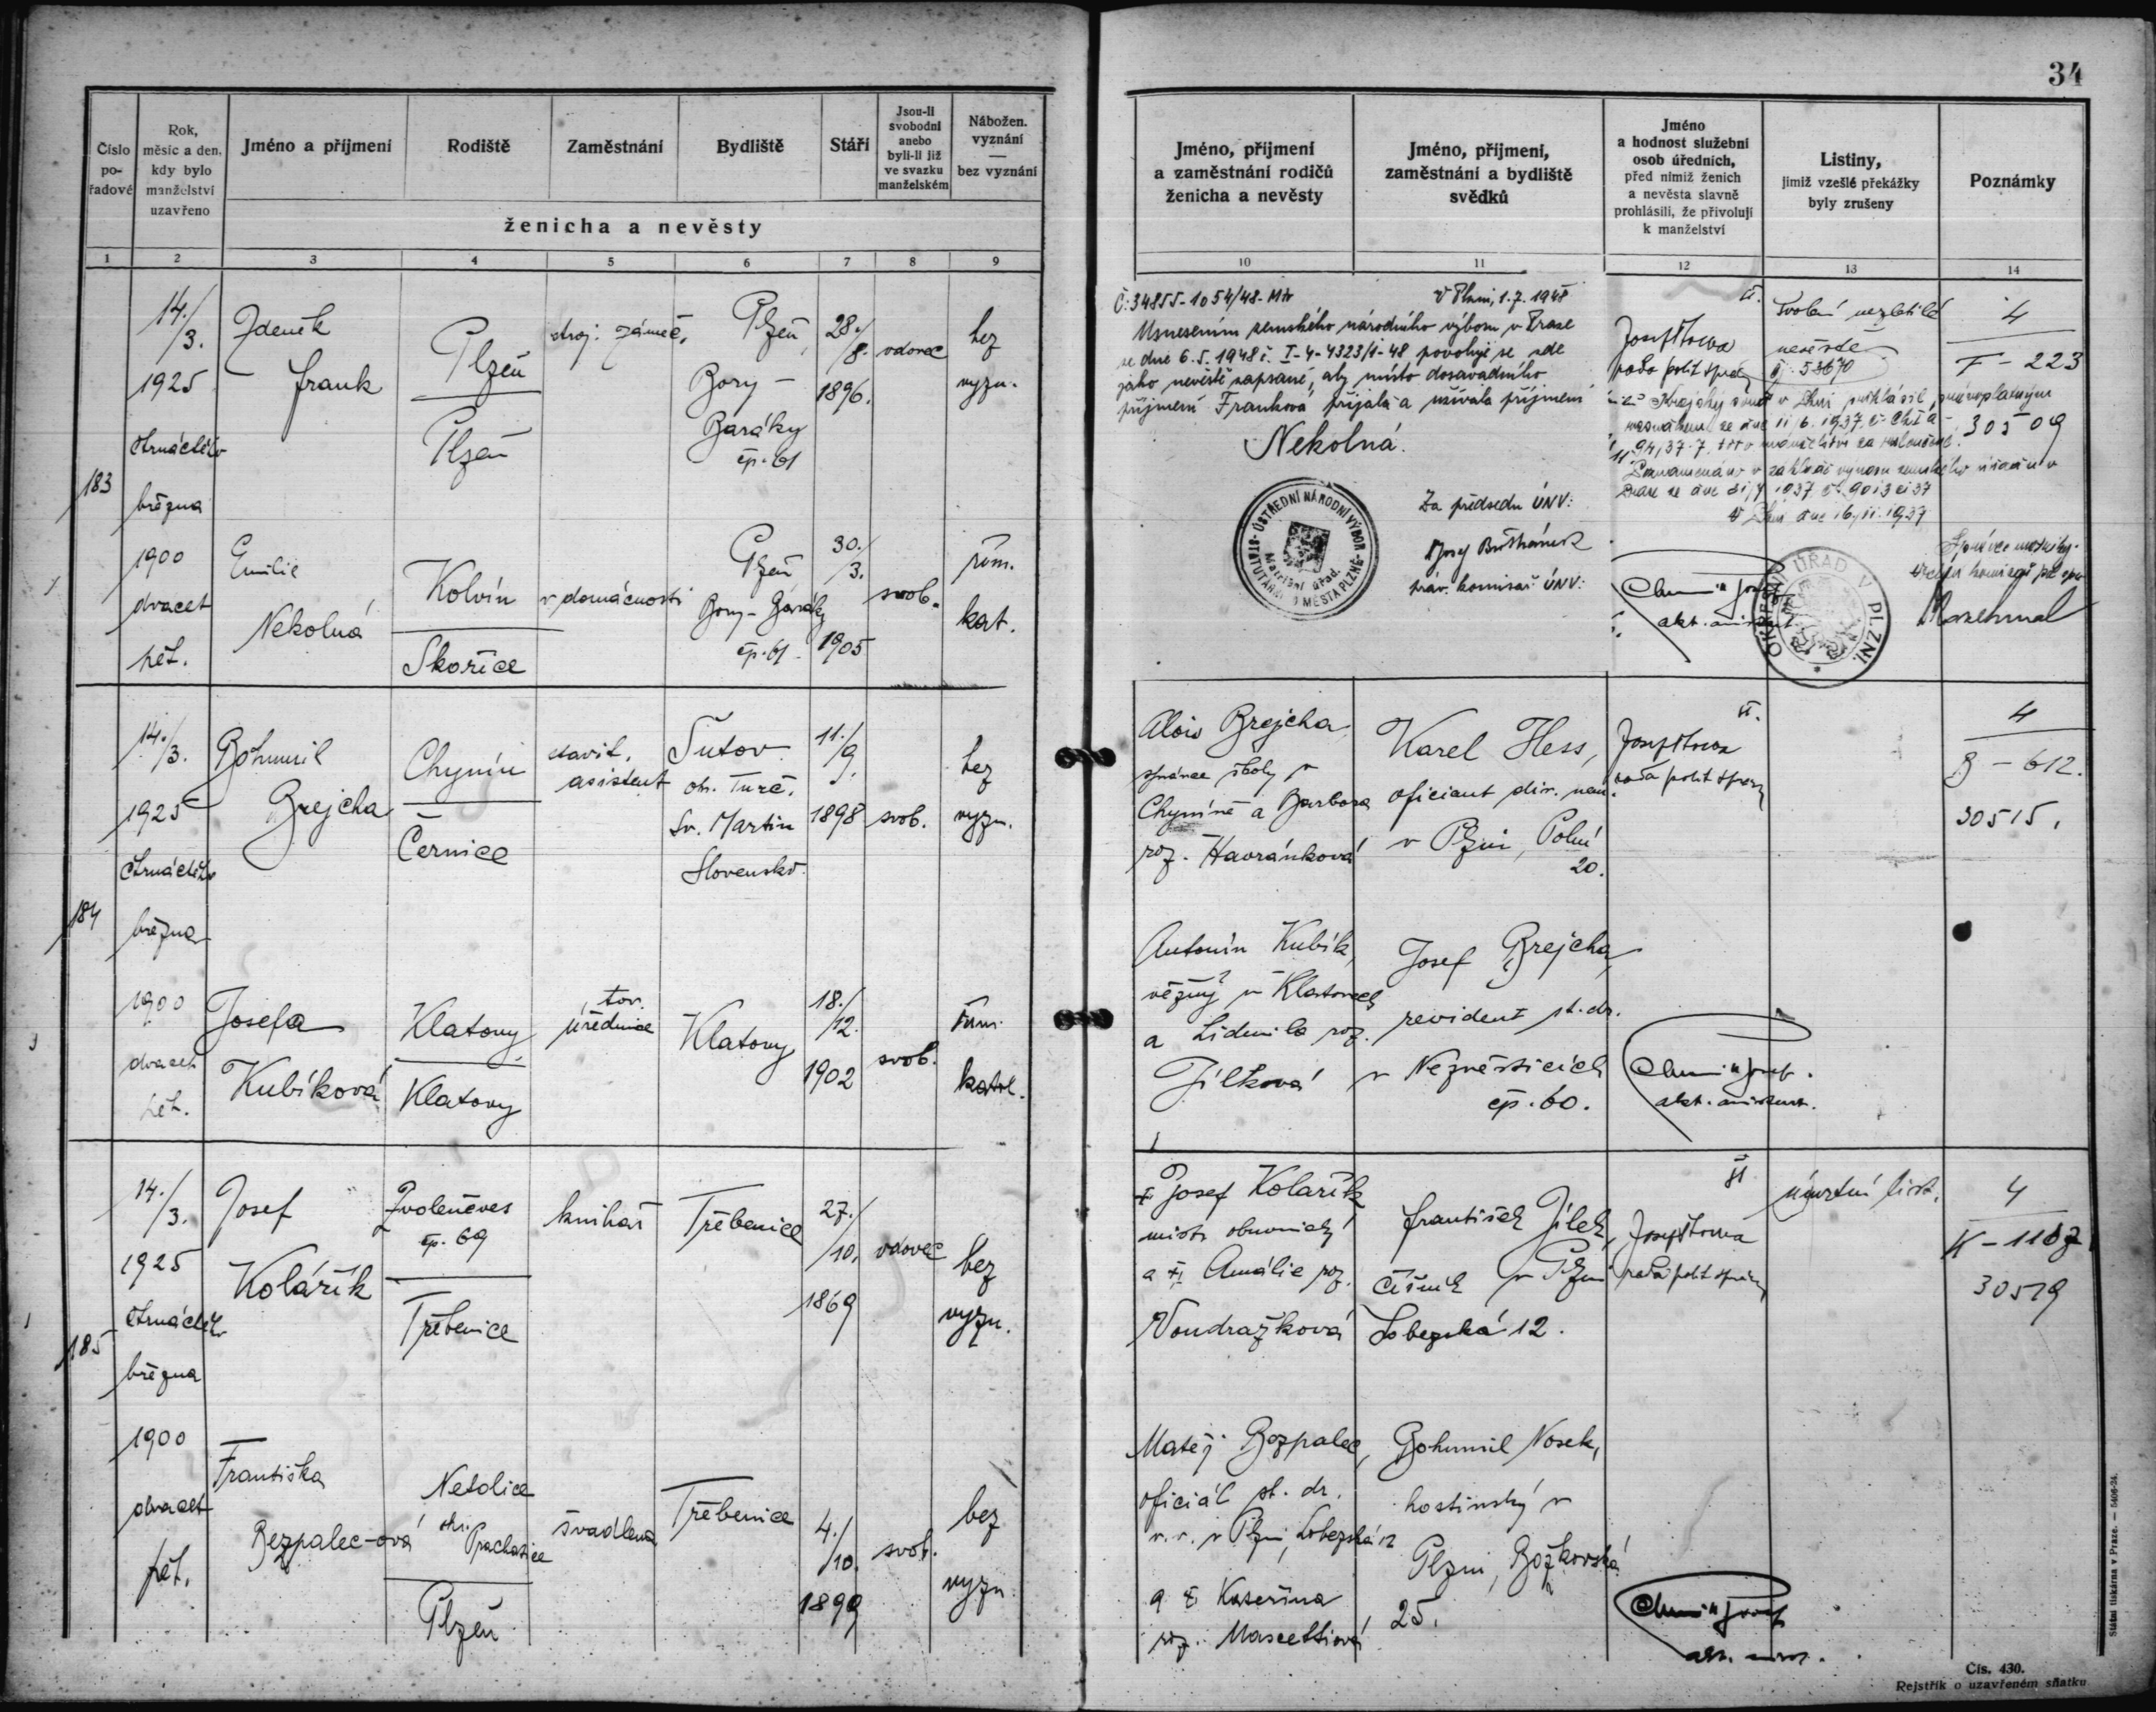 34
Číslo
po-
řadové
Rok,
měsíc a den,
kdy bylo
manželství
uzavřeno
Jméno a příjmení
Rodiště
Zaměstnání
Bydliště
Stáří
Jsou-li
svobodni
anebo
byli-li již
ve svazku
manželském
Nábožen.
vyznání
—
bez vyznání
ženicha a nevěsty
1 2 3 4 5 6 7 8 9
Jméno, příjmení
a zaměstnání rodičů
ženicha a nevěsty
Jméno, příjmení,
zaměstnání a bydliště
svědků
Jméno
a hodnost služební
osob úředních,
před nimiž ženich
a nevěsta slavně
prohlásili, že přivolují
k manželství
Listiny,
jimiž vzešlé překážky
byly zrušeny
Poznámky
10 11 12 13 14
183
14./3.
1925
čtrnáctého
března
1900
dvacet
pět.
Zdeněk
Frank
Plzeň
Plzeň
stroj. zámeč.
Plzeň,
Bory –
Baráky
čp. 61
28./8.
1896.
vdovec
bez
vyzn.
Emilie
Nekolná
Kolvín
Skořice
v domácnosti
Plzeň
Bory – Baráky
čp. 61.
30./3.
1905
svob.
řím.
kat.
Č: 34855-1054/48-Mtr V Plzni, 1.7.1948
Usnesením zemského národního výboru v Praze
ze dne 6.5.1948 č. I-4-4323/1-48 povoluje se zde
jako nevěstě zapsané, aby místo dosavadního
příjmení Franková přijala a užívala příjmení
Nekolná.
Za předsedu ÚNV:
práv. komisař ÚNV:
ÚSTŘEDNÍ NÁRODNÍ VÝBOR
STATUTÁRNÍHO MĚSTA PLZNĚ
Matriční úřad.
rada polit. správy
Svolení nezletilé
nevěstě
čj. 58670
4
F – 223
30509
Krajský soud v Plzni prohlásil pravoplatným
V Plzni dne 16/11.1937
akt. assistent.
OKRESNÍ ÚŘAD V PLZNI.
184
14./3.
1925
čtrnáctého
března
1900
dvacet
pět.
Bohumil
Brejcha
Chynín
Černice
stavit.
asistent
Šutov
ok. Turč.
Sv. Martin
Slovensko.
11./9.
1898
svob.
bez
vyzn.
Josefa
Kubíková
Klatovy
Klatovy
tov.
úřednice
Klatovy
18./12.
1902
svob.
řím.
katol.
Alois Brejcha,
správce školy v
Chyníně a Barbora
roz. Havránková
Karel Hess,
oficiant dir. nem.
v Plzni, Polní
20.
rada polit. správy
4
B – 612.
30515.
Antonín Kubík,
vězný v Klatovech
a Lidmila roz.
Jílková
Josef Brejcha,
revident st. dr.
v Nezvěsticích
čp. 60.
akt. assistent.
185
14./3.
1925
čtrnáctého
března
1900
dvacet
pět.
Josef
Kolářík
Zvoleněves
čp. 69
Třebenice
knihař
Třebenice
27./10.
1869
vdovec
bez
vyzn.
Františka
Bezpalec-ová
Netolice
okr. Prachatice
Plzeň
švadlena
Třebenice
4./10.
1899
svob.
bez
vyzn.
Josef Kolařík
mistr obuvnický
a Amálie roz.
Vondrážková
František Jílek,
číšník v Plzni
Lobezská 12.
rada polit. správy
úmrtní list.
4
K – 1187
30519
Matěj Bezpalec,
oficiál st. dr.
v. v. v Plzni, Lobezská 12
a Kateřina
roz. Mascettiová
Bohumil Nosek,
hostinský v
Plzni, Božkovská
25.
Státní tiskárna v Praze. — 5406-24.
Čís. 430.
Rejstřík o uzavřeném sňatku